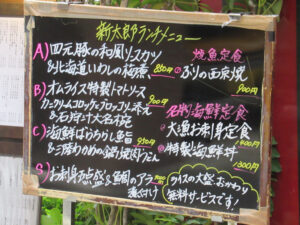 新太郎ランチメニュー
A) 四元豚の和風ソースカツ
&北海道いわしの梅煮 850円
B) オムライス特製トマトソース
900円
カニクリームコロッケ・ブロッコリー添え
&石狩汁大名椀
C) 海鮮ばらちらし鮨
&三陸わかめの鍋焼うどん
950円
S) お刺身五点盛&鯛のアラ煮付け
焼魚定食
・ぶりの西京焼
900円
名物海鮮定食
・大漁お刺身定食
1400円
・特製海鮮丼
1300円
ライスの大盛、おかわり
無料サービスです!